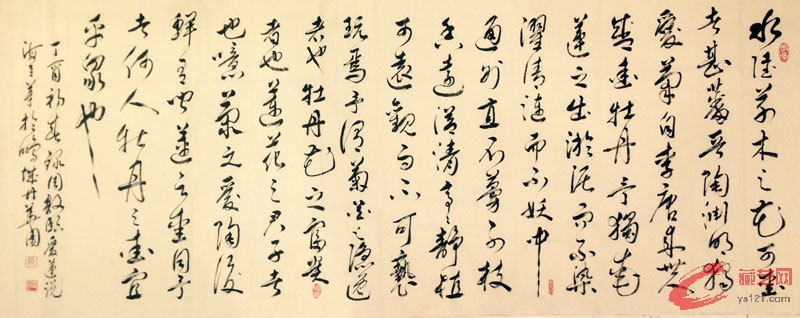 水陸草木之花可愛
者甚蕃晉陶淵明獨
愛菊自李唐來世人
盛愛牡丹予獨愛
蓮之出淤泥而不染
濯清漣而不妖中
通外直不蔓不枝
香遠益清亭亭静植
可遠觀而不可褻
玩焉予謂菊花之隱逸
者也牡丹花之富貴
者也蓮花之君子者
也噫菊之愛陶後
鮮有聞蓮之愛同予
者何人牡丹之愛宜
乎衆也
丁酉初春錄周敦頤愛蓮說
於鵬城
藏艺网
ys121.com